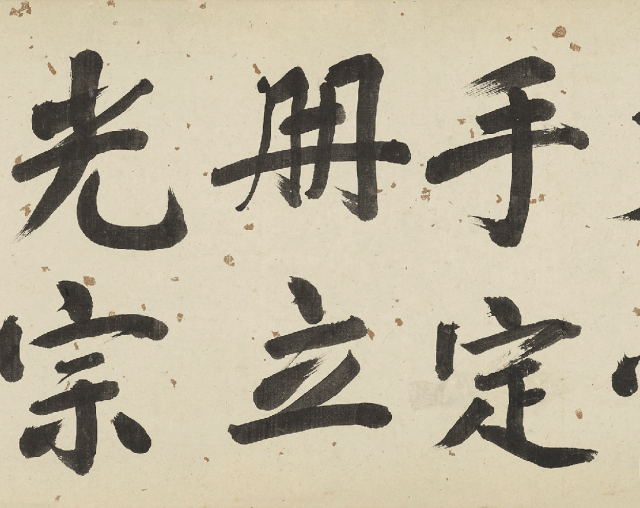 手定
册立
光宗